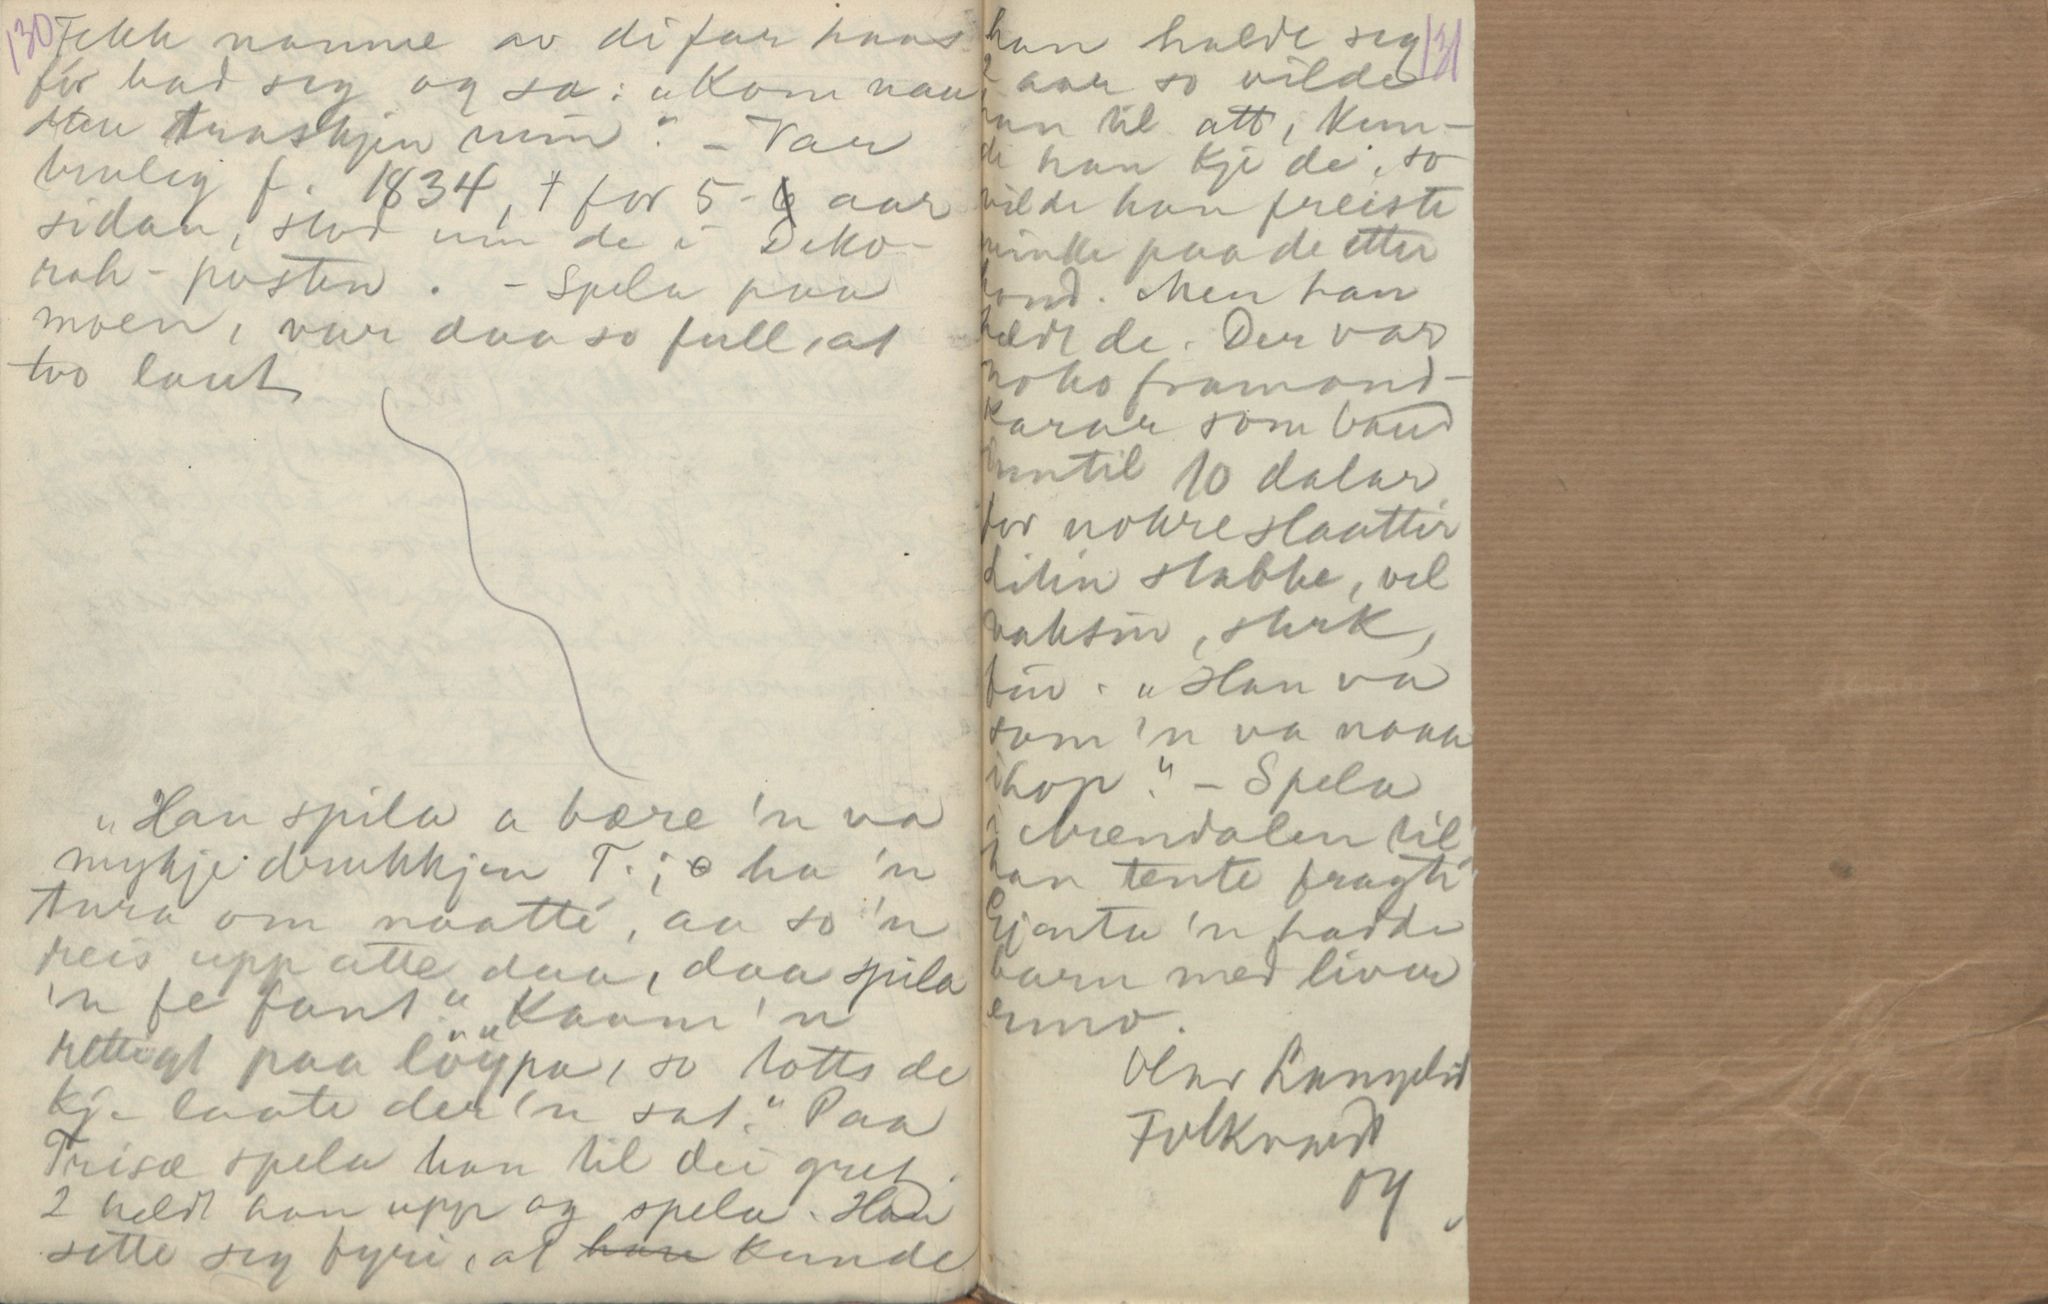 130
Fekk namne av di far hans
for bad seg og sa: "Kom naa
du traskjen min". - Var
truleg f. 1834, † for 5-6 aar
sidan, stod um de i Deko-
rah-posten. - Spela paa
moen, var daa so full, at
two laut
"Han spila a bære 'n va
mykje drukkjen T.; ha 'n
tura om naatte, aa so 'n
reis upp atte daa, daa spila
'n fe fant" "Kaam 'n
rettigt paa löypa, so totts de
kje laate der 'n sat." Paa
Trisæ spela han til dei gret.
2 heldt han upp og spela. Han
sette seg fyri, at han kunde
131
han halde seg
2 aar so vilde
han til att, Kun-
de han kje de, so
vilde han freiste
minke paa de etter
hond. Men han
heldt de. Der var
noko framand-
karar som baud
inntil 10 dalar
for nokre slaatter
Liten stabbe, vel
vaksin, sterk,
fin. "Han va
som 'n va naaa
ihop." - Spela
i Arendalen til
han tente fragti
Gjenta 'n hadde
barn med liver
enno.
Olav Langelid
Folkvard
OY